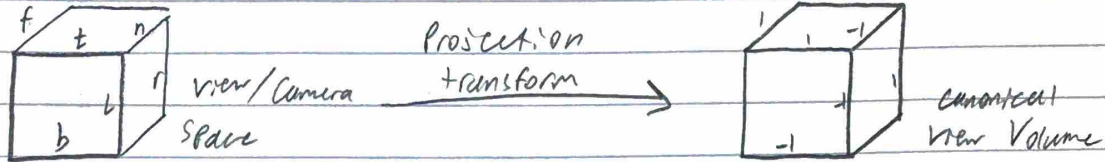 f t n
l r
b
View/Camera
Space
Projection
transform
1 1 -1
-1 1
-1
canonical
View Volume